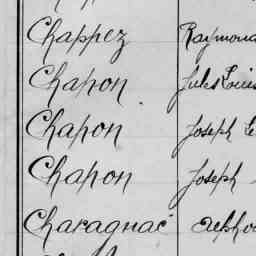 Chappez Raymond
Chapon Jules Louis
Chapon Joseph
Chapon Joseph
Charagnac